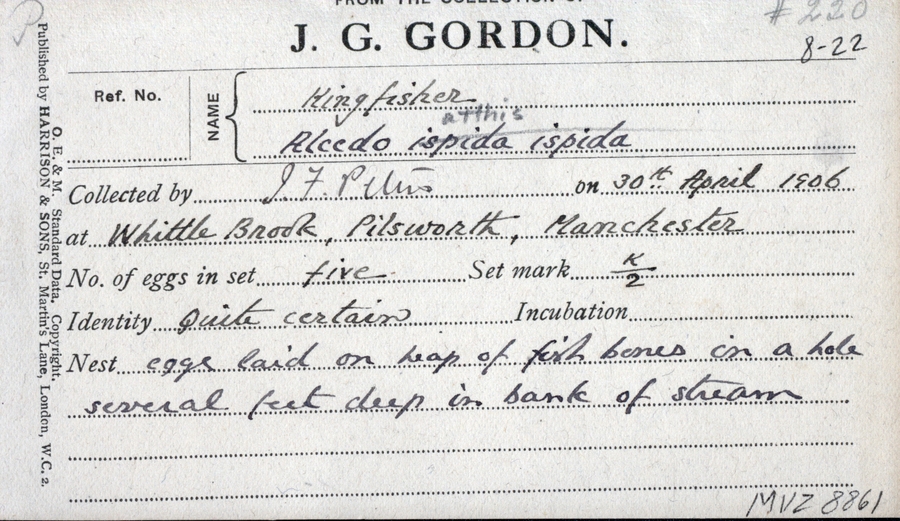 FROM THE COLLECTION OF
J. G. GORDON.
#220
8-22
Ref. No.
NAME
Kingfisher
atthis
Alcedo ispida ispida
Collected by J. F. Peters on 30th April 1906
at Whittle Brook, Pilsworth, Manchester
No. of eggs in set five Set mark K/2
Identity Quite certain Incubation
Nest eggs laid on heap of fish bones in a hole
several feet deep in bank of stream
MVZ 8861
O. E. & M. Standard Data. Copyright.
Published by HARRISON & SONS, St. Martin's Lane, London, W.C. 2.